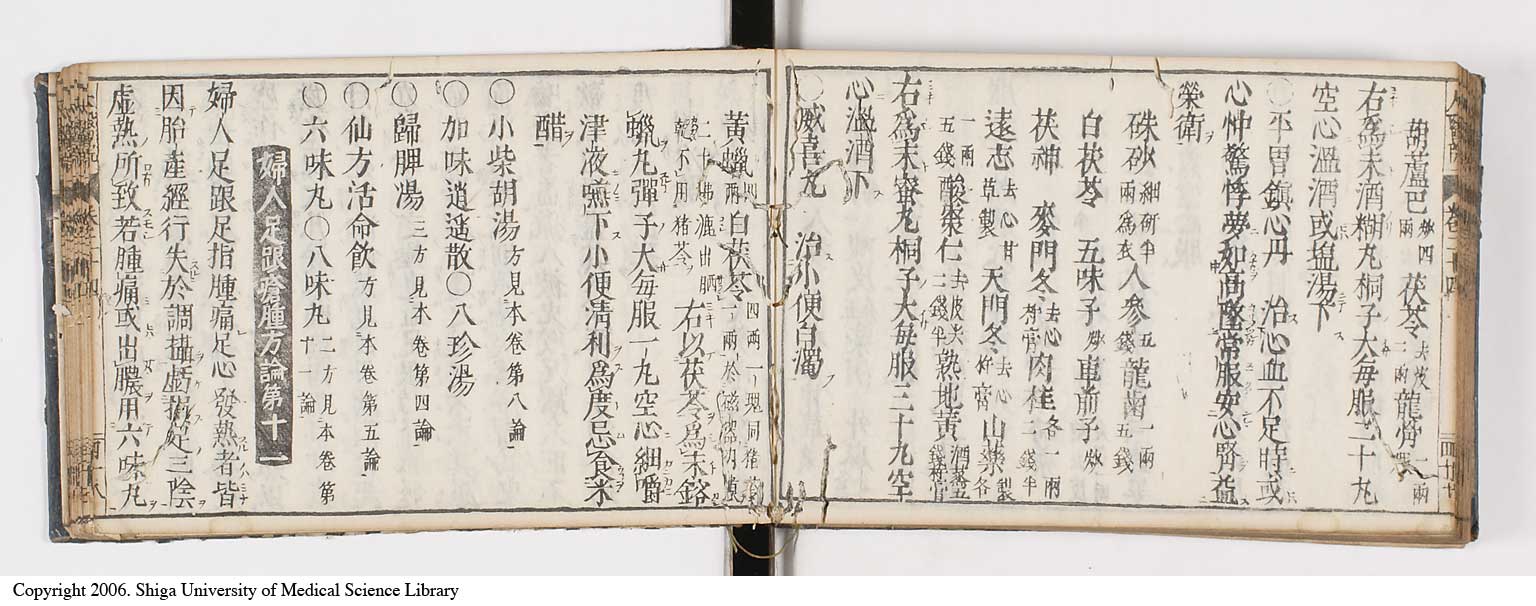 胡蘆巴 炒四兩 茯苓 去皮二兩 龍骨 一兩
右爲末酒糊丸桐子大每服三十丸
空心溫酒或塩湯下
○平胃鎮心丹 治心血不足時或
心忡驚悸夢如高墮常服安心腎益
榮衛
硃砂 細研半兩爲衣 人參 五錢 龍齒 一兩五錢
白茯苓 五味子 炒 車前子 炒
茯神 麥門冬 去心 肉桂 各一兩二錢半
遠志 去心甘草製一兩五錢 天門冬 去心 山藥 製各
酸棗仁 去皮夫二錢半 熟地黃 酒蒸
右爲末蜜丸桐子大每服三十丸空
心溫酒下
○威喜丸 治小便白濁
黃蠟 四兩 白茯苓 四兩一塊同猪苓一兩於磁器内煮二十拂漉出晒乾不用猪苓
右以茯苓爲末鎔
蠟丸彈子大每服一丸空心細嚼
津液嚥下小便淸利爲度忌食米
醋
○小柴胡湯 方見本卷第八論
○加味逍遥散○八珍湯
○歸脾湯 三方見本卷第四論
○仙方活命飲 方見本卷第五論
○六味丸○八味丸 二方見本卷第十一論
婦人足跟瘡腫方論第十一
婦人足跟足指腫痛足心發熱者皆
因胎產經行失於調攝虧損足三陰
虛熱所致若腫痛或出膿用六味丸
Copyright 2006. Shiga University of Medical Science Library